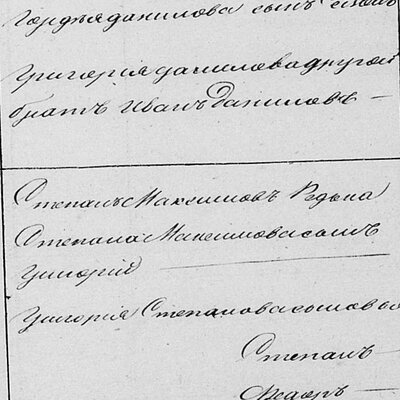 Гордѣя Данилова сынъ Семенъ
Григорія Данилова другой
братъ Иванъ Даниловъ
Степанъ Максимовъ Рѣдька
Степана Максимова сынъ
Григорій
Григорія Степанова сыновья
Степанъ
Ѳедоръ